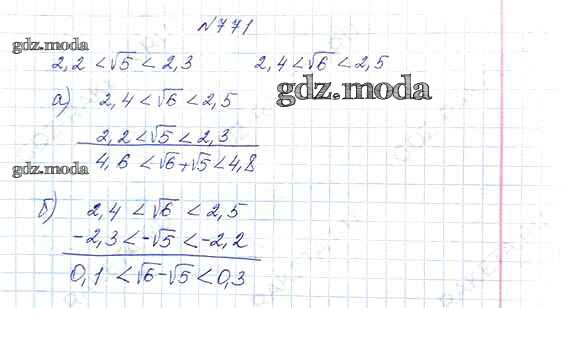 №771
gdz.moda
2,2 < √5 < 2,3 2,4 < √6 < 2,5
gdz.moda
а) 2,4 < √6 < 2,5
2,2 < √5 < 2,3
gdz.moda
4,6 < √6 + √5 < 4,8
б) 2,4 < √6 < 2,5
-2,3 < -√5 < -2,2
0,1 < √6 - √5 < 0,3